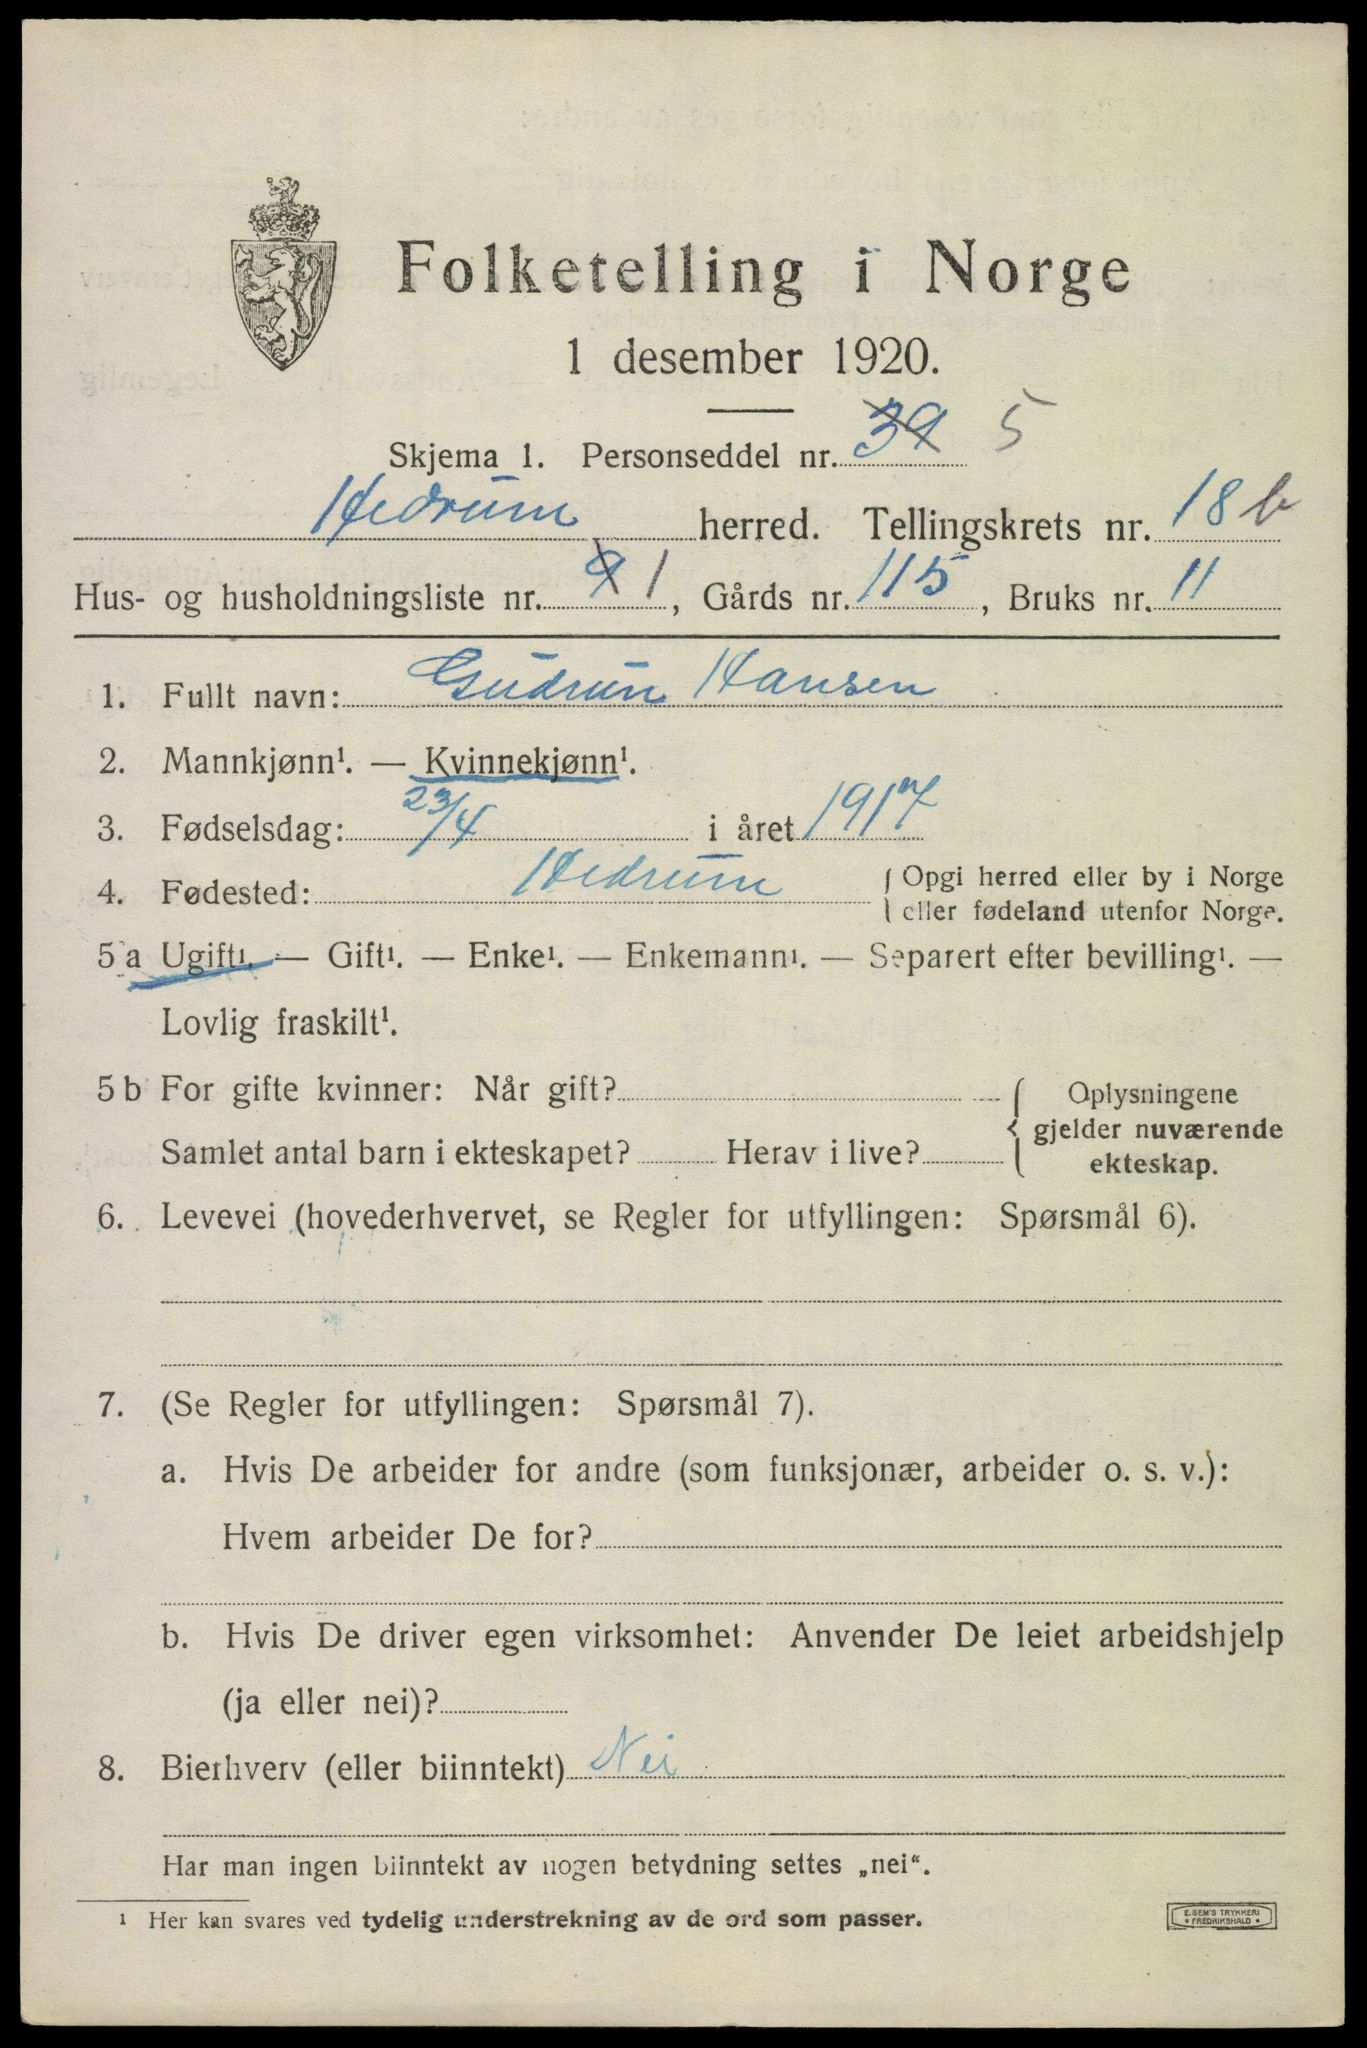 Folketelling i Norge
1 desember 1920.
Skjema 1. Personseddel nr. 39 5
Hedrum herred. Tellingskrets nr. 18 b
Hus- og husholdningsliste nr. 9 1, Gårds nr. 115, Bruks nr. 11
1. Fullt navn: Gudrun Hansen
2. Mannkjønn¹. — Kvinnekjønn¹.
3. Fødselsdag: 23/4 i året 1917
4. Fødested: Hedrum { Opgi herred eller by i Norge
eller fødeland utenfor Norge.
5 a Ugift¹. — Gift¹. — Enke¹. — Enkemann¹. — Separert efter bevilling¹. —
Lovlig fraskilt¹.
5 b For gifte kvinner: Når gift? { Oplysningene
gjelder nuværende
Samlet antal barn i ekteskapet? Herav i live? ekteskap.
6. Levevei (hovederhvervet, se Regler for utfyllingen: Spørsmål 6).
7. (Se Regler for utfyllingen: Spørsmål 7).
a. Hvis De arbeider for andre (som funksjonær, arbeider o. s. v.):
Hvem arbeider De for?
b. Hvis De driver egen virksomhet: Anvender De leiet arbeidshjelp
(ja eller nei)?
8. Bierhverv (eller biinntekt) Nei
Har man ingen biinntekt av nogen betydning settes „nei".
¹ Her kan svares ved tydelig understrekning av de ord som passer.
E. SEM'S TRYKKERI
* FREDRIKSHALD *